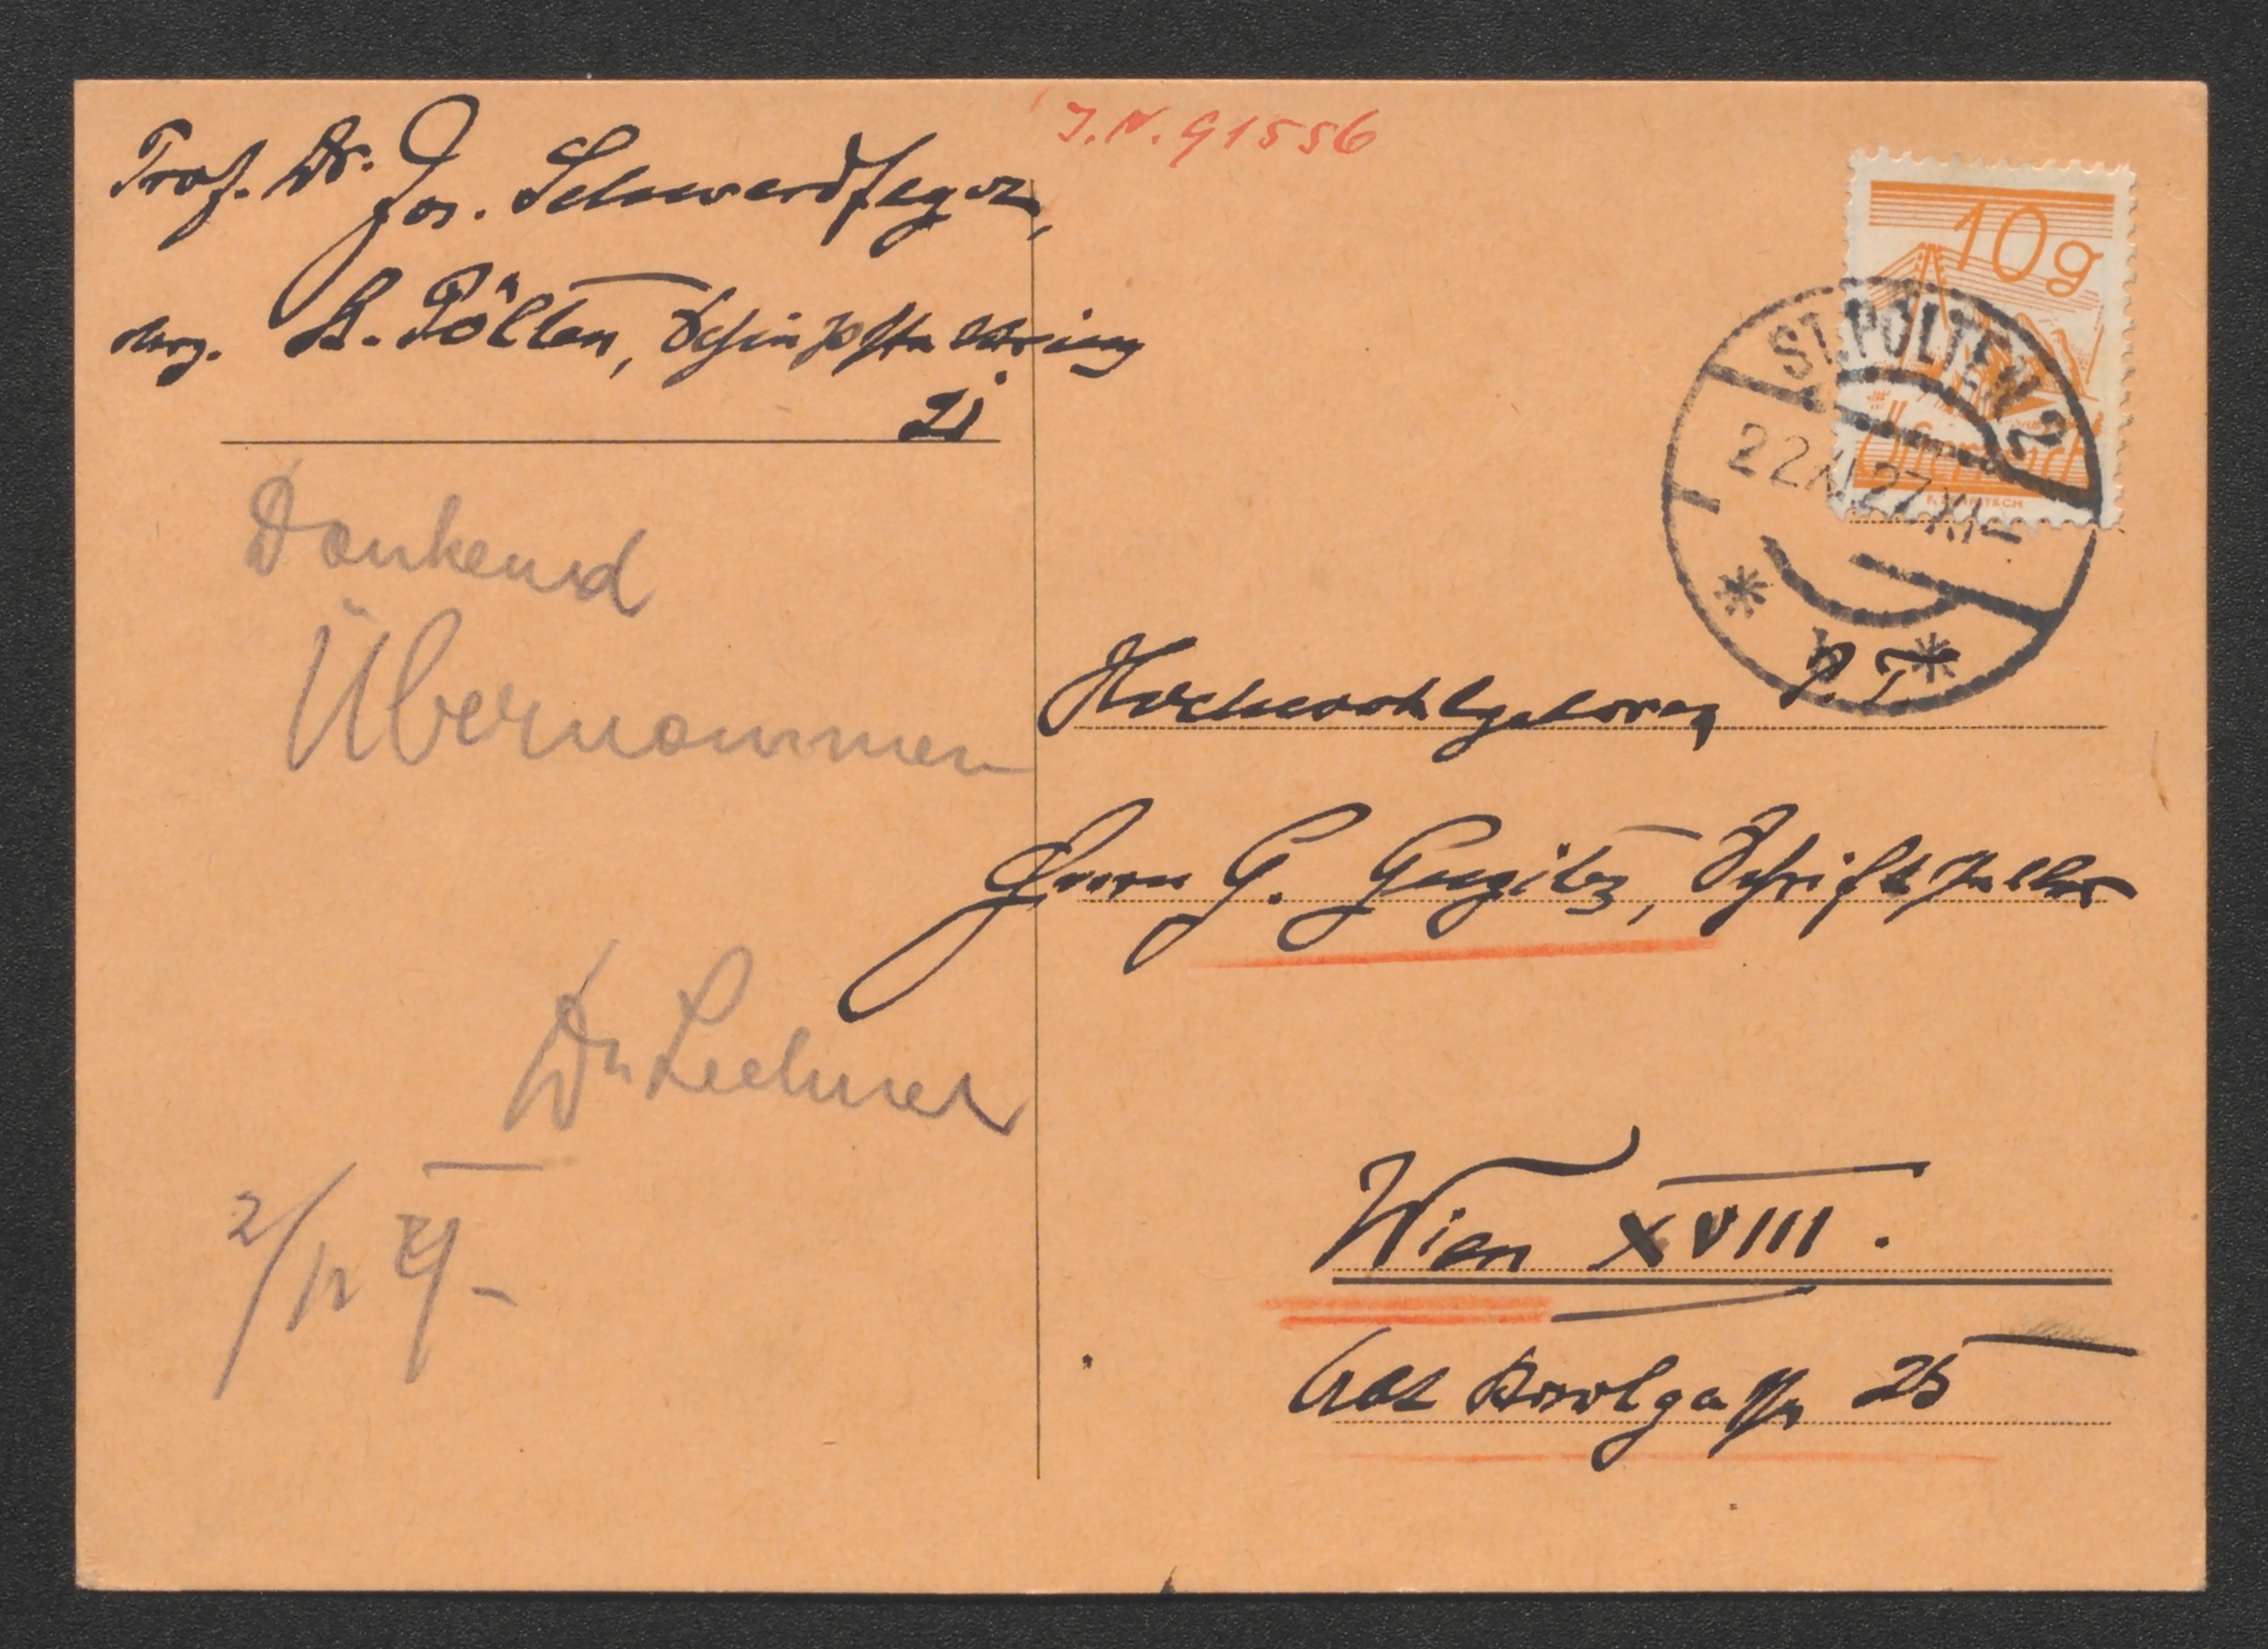 J.N. 91556
Prof. Dr. Jos. Schwerdfeger,
St. Pölten, Schießstattring
21
10g
Österreich
ST. PÖLTEN 2
22.XI.27.XI-
Dankend
Übernommen
Dr Lechner
2/12 27-
Hochwohlgeboren P.T.
Herrn G. Gugitz, Schriftsteller
Wien XVIII.
Abt Karlgasse 25